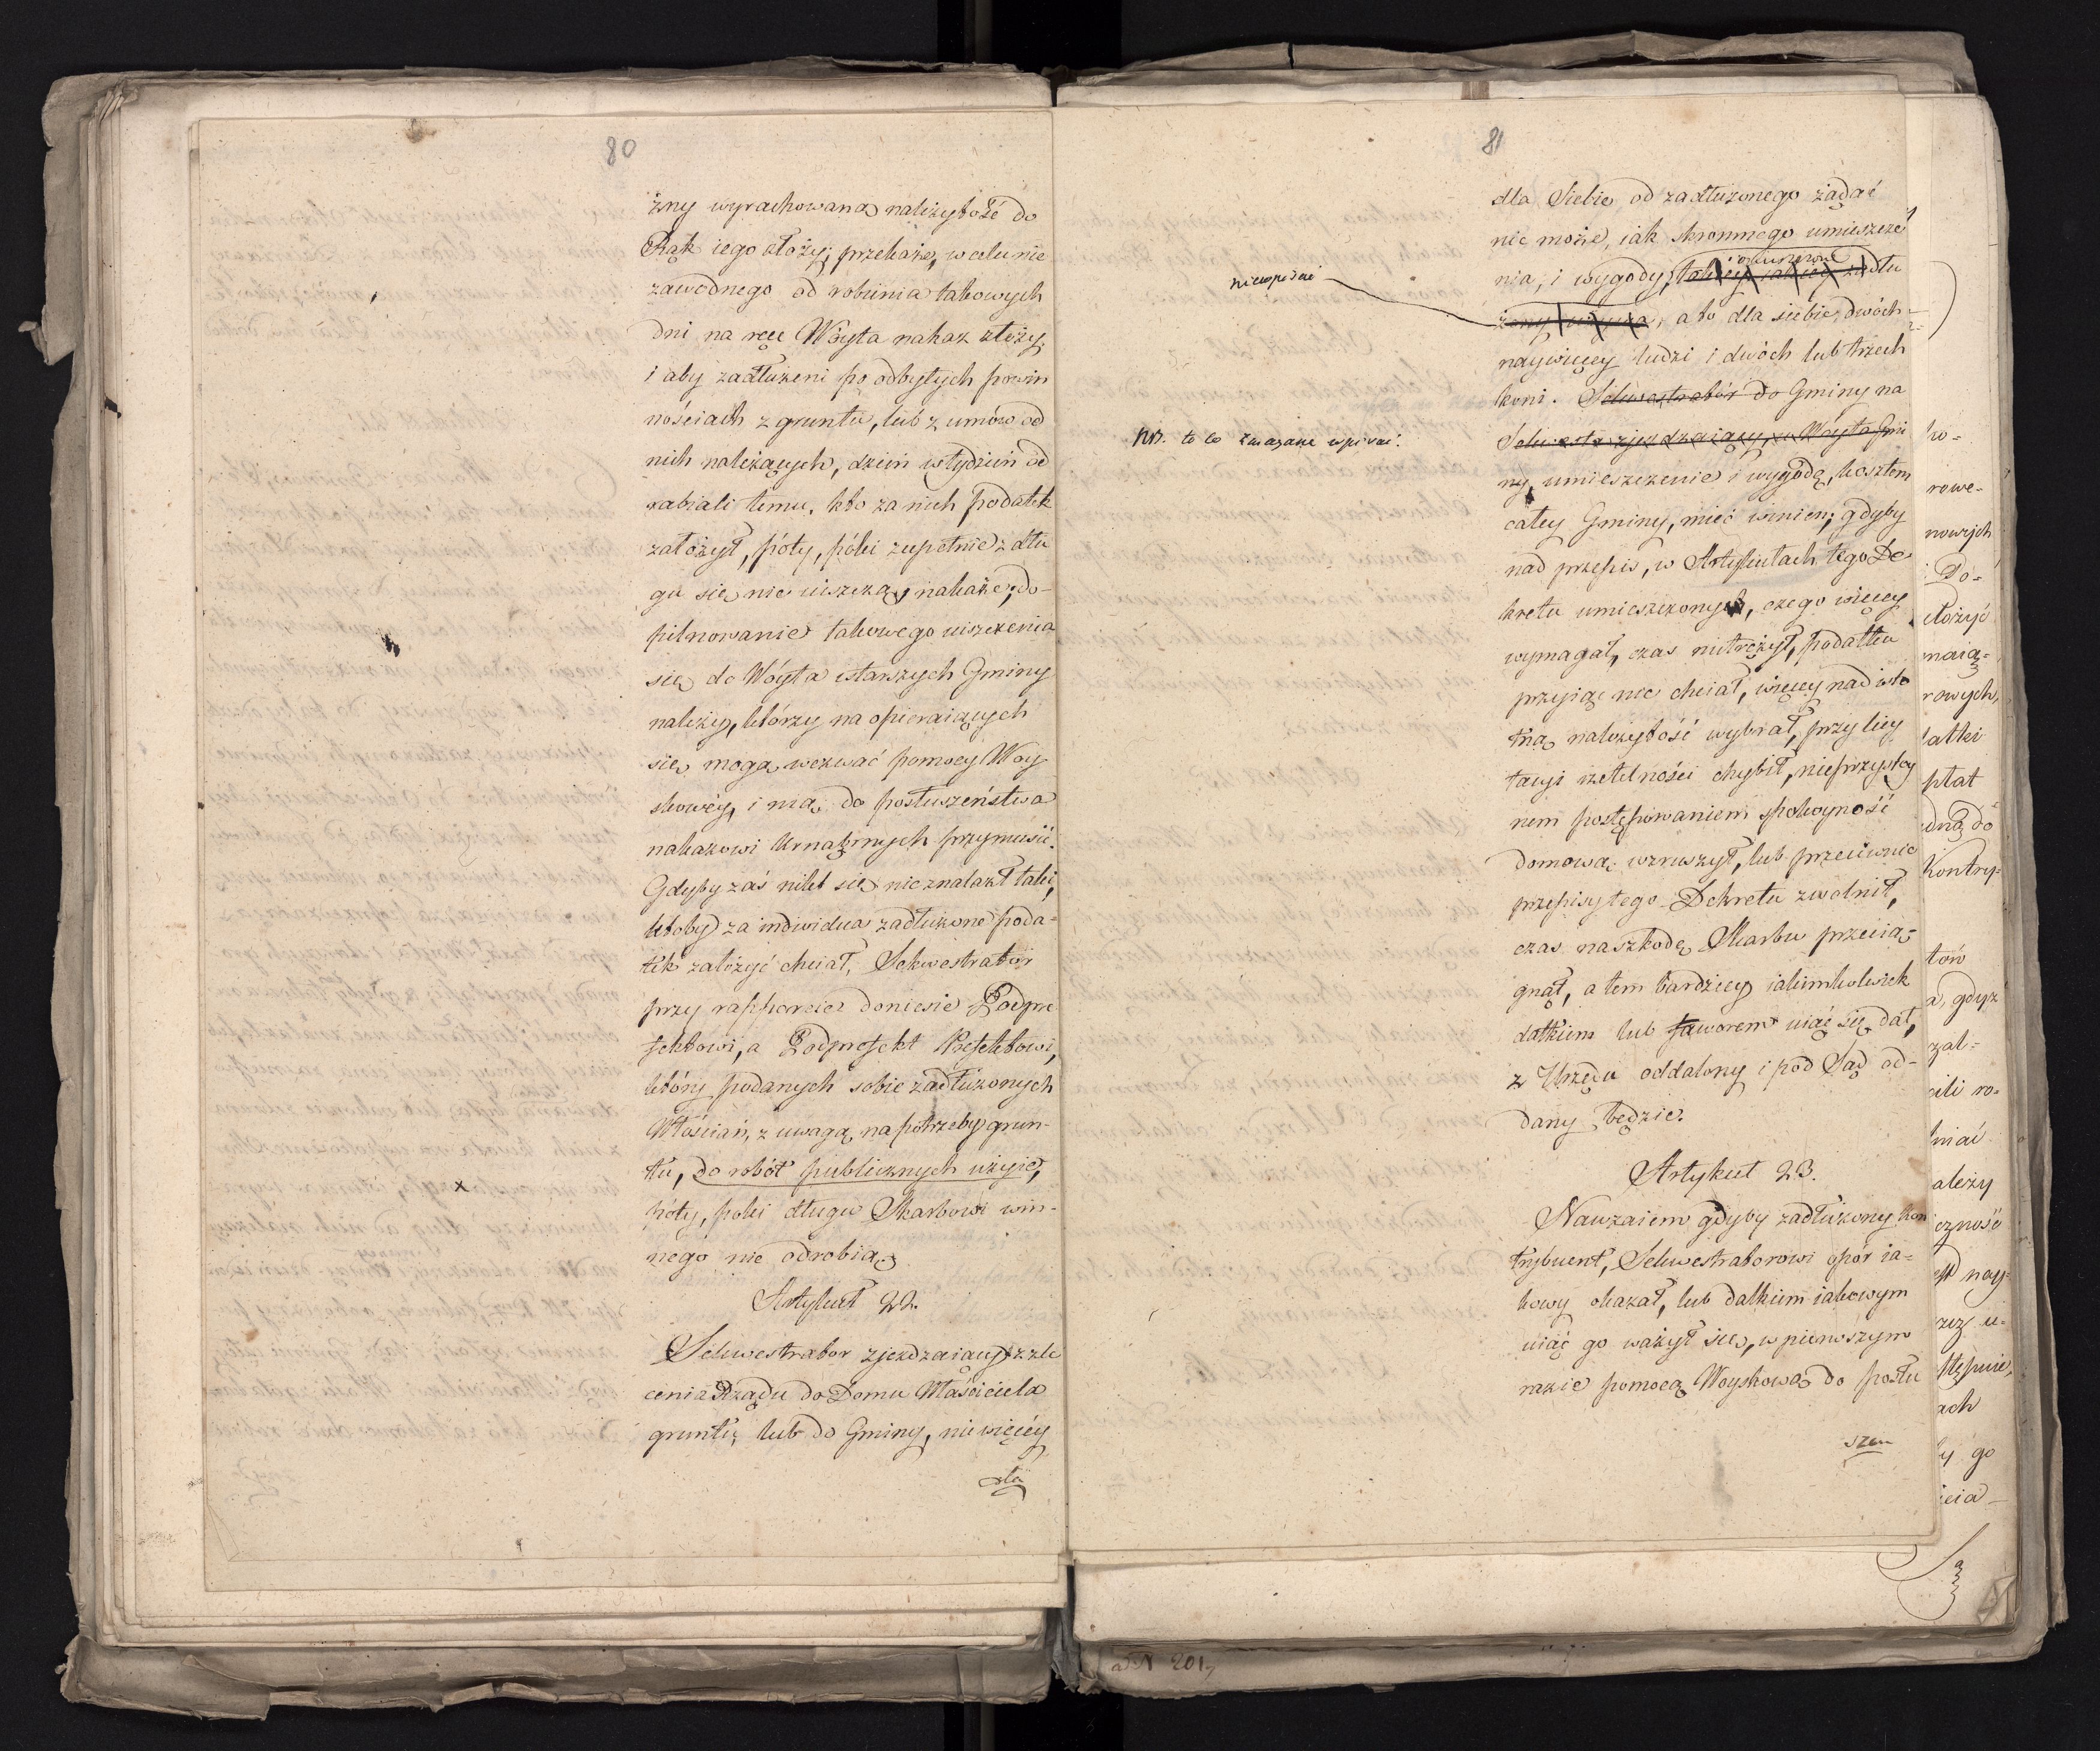 80
żny wyrachowaną należytość do
Rąk iego złoży, przekaże, w celu nie
zawodnego od robienia takowych
dni na ręce Wóyta nakaz złoży,
i aby zadłużeni po odbytych powin
nościach z gruntu, lub z umów od
nich należących, dzień w tydzień od
rabiali temu, kto za nich podatek
założył, póty, póki zupełnie z dłu
gu się nie uiszczą, nakaże; do-
pilnowanie takowego uiszczenia
się do Wóyta i starszych Gminy
należy, którzy na opieraiących
się mogą wezwać pomocy Woy
skowéy, i maią do posłuszeństwa
nakazowi krnąbrnych przymusić.
Gdyby zaś nikt się nie znalazł taki,
któby za indiwidua zadłużone poda-
tek założyć chciał, Sekwestrator
przy rapporcie doniesie Podpre
fektowi, a Podprefekt Prefektowi,
który podanych sobie zadłużonych
Włościan, z uwagą na potrzeby grun-
tu, do robót publicznych użyie,
póty, póki długu Skarbowi win-
nego nie odrobią.
Artykuł 22.
Sekwestrator zjeżdzaiący z zle
cenia Rządu do Domu Właściciela
gruntu, lub do Gminy, niewięcéy
dla
81
dla Siebie od zadłużonego żądać
nie może, iak skromnego umieszcze
nia, i wygody, zadłu
niewpisać
żony używa, a to dla siebie, dwóch
naywięcey ludzi i dwóch lub trzech
koni. Sekwestrator do Gminy na
NB. to co zmazane wpisać.
Sekwestr zjeżdzaiący, u Wóyta Gmi
ny, umieszczenie i wygodę, kosztem
całey Gminy, mieć winien; gdyby
nad przepis, w Artykułach tego De
kretu umieszczonych, czego więcey
wymagał, czas mitrężył, podatku
przyiąć nie chciał, więcey nad isto
tną należytość wybrał, przy licy
tacyi rzetelności chybił, nieprzystoy
nem postępowaniem spokoyność
domową wzruszył, lub przeciwnie
przepisy tego Dekretu zwolnił,
czas na szkodę Skarbu przecią-
gnął, a tem bardziey iakimkolwiek
datkiem lub faworem uiąć się dał,
z Urzędu oddalony i pod Sąd od-
dany będzie.
Artykuł 23.
Nawzaiem gdyby zadłużony kon
trybuent, Sekwestratorowi opór ia-
kowy okazał, lub datkiem iakowym
uiąć go ważył się, w pierwszym
razie pomocą Woyskową do posłu
szeń
ko-
rowe-
nowych
Do-
złożyć
maią-
rowych,
datki
płat
dną do
Kontry-
tów
a, gdyż
zal-
cili ro-
niać
ależy
czność
nay-
u-
stępnie,
ach
by go
ścia-
N 201